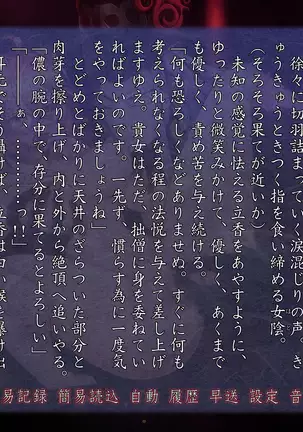 徐々に切羽詰まっていく涙混じりの声、き
ゅうきゅうときつく指を食い締める女陰。
（そろそろ果てが近いか）
未知の感覚に怯える立香をあやすように、
ゆったりと微笑みかけて、優しく、あくまで
も優しく、責め苦を与え続ける。
「何も恐ろしくなどありませぬ。すぐに何も
考えられなくなる程の法悦を与えて差し上げ
ますゆえ。貴女はただ、拙僧に身を委ねてい
ればよいのです。一先ず、慣らす為に一度気
をやっておきましょうね」
とどめとばかりに天井のざらついた部分と
肉芽を擦り上げ、内と外から絶頂へ追いやる。
「儂の腕の中で、存分に果てるとよろしい」
「――ぁ、………っ!!」
易記録 簡易読込 自動 履歴 早送 設定 音